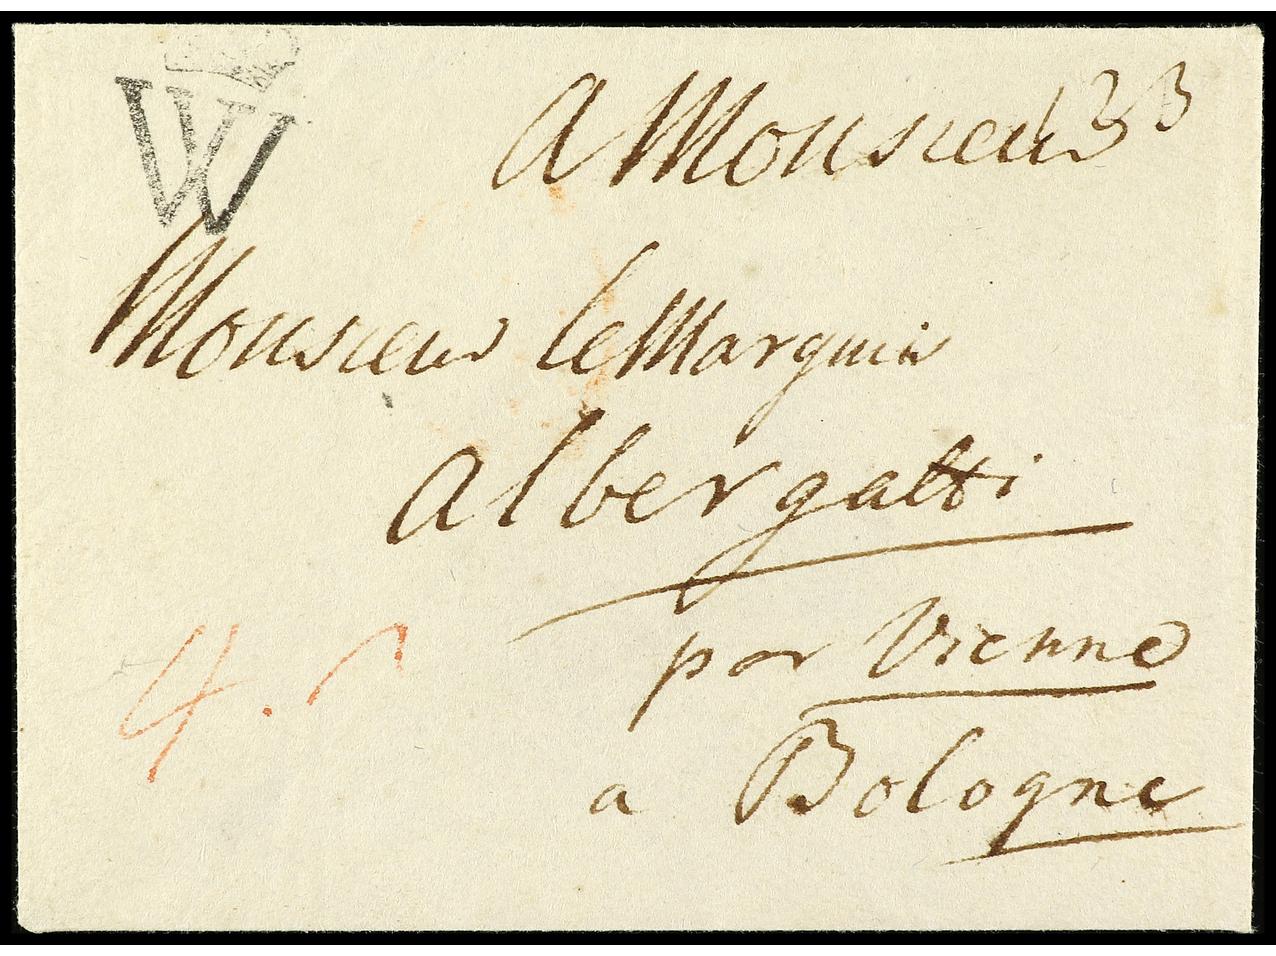 W
A Monsieur 33
Monsieur le Marquis
Albergatti
par Vienne
a Bologne
4.